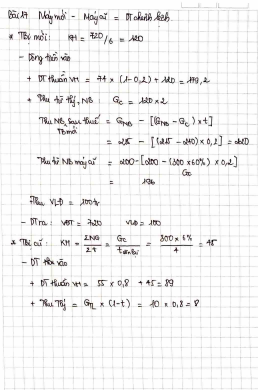 Bài 17 Máy mới - Máy cũ = DT chênh lệch
* TBị mới: KH = 720/6 = 120
- Dòng tiền vào
+ DT thuần VH = 74 × (1-0,2) + 120 = 179,2
+ Thu từ thlý, NB: GC = 120 × 2
Thu NB, sau thuế = GNB - [(GNB - GC) × t]
TB mới
= 215 - [(215 - 240) × 0,2] = 220
Thu từ NB máy cũ = 200 - [200 - (300 × 60%) × 0,2]
GC
= 196
Thu VLĐ = 100tr
- DT ra: VĐT = 720 VLĐ = 100
* TBị cũ: KH = ΣNG / 2t = GC / t = 300 × 6% / 4 = 45
- DT vào
+ DT thuần VH = 55 × 0,8 + 45 = 89
+ Thu Tlý = GTL × (1-t) = 10 × 0,8 = 8